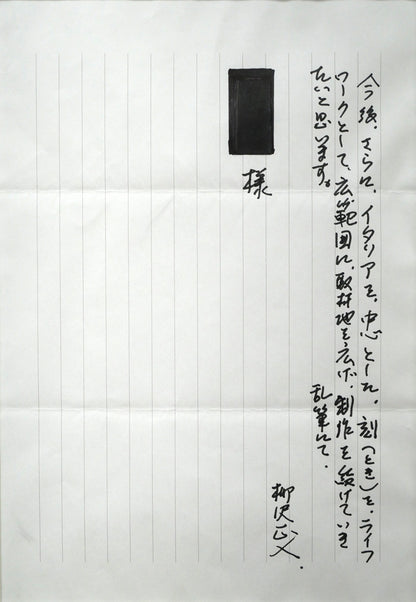 今後、さらに、イタリアを、中心とした、刻(とき)を、ライフ
ワークとして、広範囲に、取材地を広げ、制作を続けていき
たいと思います。
乱筆にて、
柳沢正人.
様